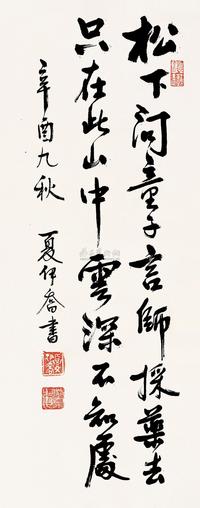 松下问童子言師採藥去
只在此山中雲深不知處
辛酉九秋
夏伊喬書